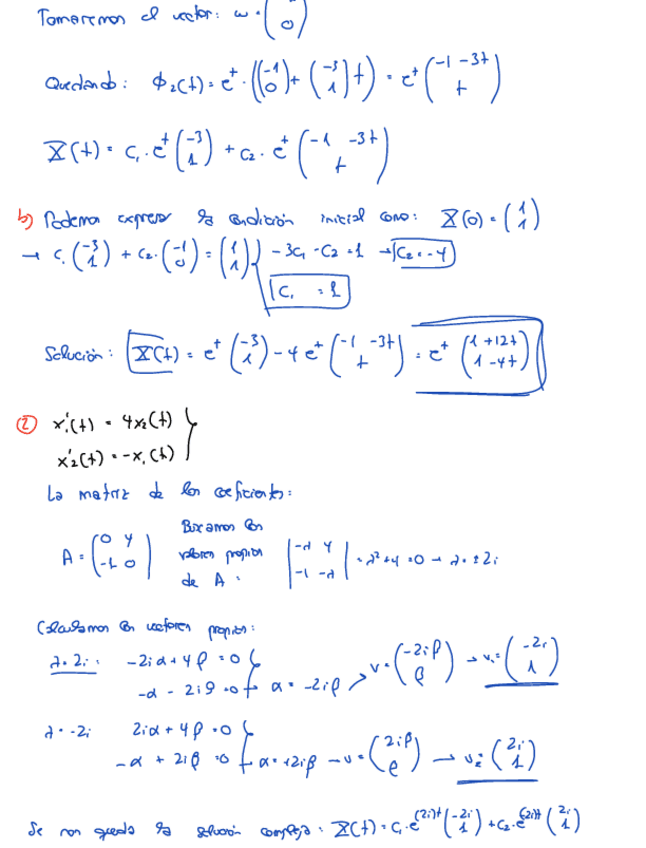 Tomaremos el vector: w = (-1 0)
Quedando: ϕ₂(t) = eᵗ · ((-1 0) + (-3 1) t) = eᵗ (-1 -3t t)
X(t) = c₁ · eᵗ (-3 1) + c₂ · eᵗ (-1 -3t t)
b) Podemos expresar la condición inicial como: X(0) = (1 1)
→ c₁ (-3 1) + c₂ · (-1 0) = (1 1) } -3c₁ - c₂ = 1 → c₂ = -4
c₁ = 1
Solución: X(t) = eᵗ (-3 1) - 4 eᵗ (-1 -3t t) = eᵗ (1 + 12t 1 - 4t)
② x'₁(t) = 4x₂(t)
x'₂(t) = -x₁(t) }
La matriz de los coeficientes:
A = (0 4 -1 0) Buscamos los valores propios de A: |-λ 4 -1 -λ| = λ² + 4 = 0 → λ = ±2i
Calculamos los vectores propios:
λ = 2i: -2iα + 4β = 0
-α - 2iβ = 0 } α = -2iβ ↗ v = (-2iβ β) → v₁ = (-2i 1)
λ = -2i 2iα + 4β = 0
-α + 2iβ = 0 } α = +2iβ → v = (2iβ β) → v₂ = (2i 1)
Se nos queda la solución compleja: X(t) = c₁ · e^(2i)t (-2i 1) + c₂ · e^(-2i)t (2i 1)